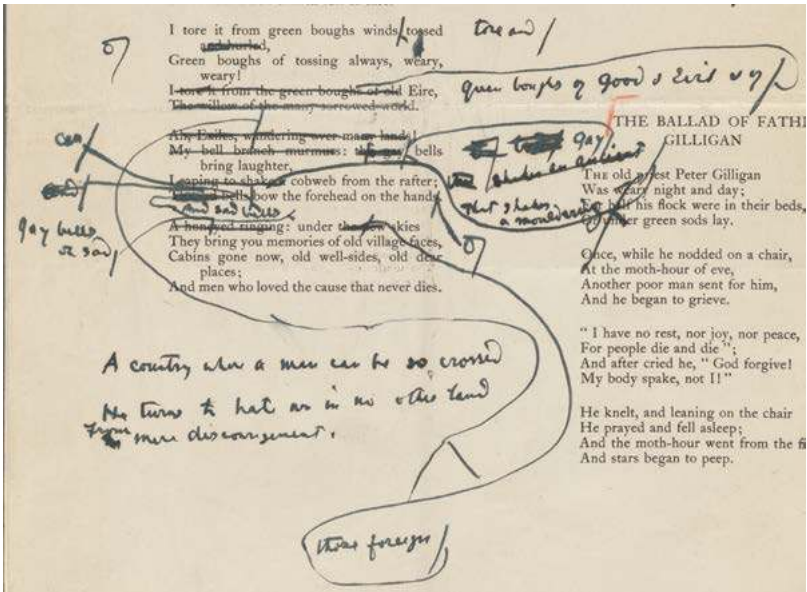 I tore it from green boughs winds tossed
and hurled,
Green boughs of tossing always, weary,
weary!
I tore it from the green boughs of old Eire,
The willow of the many-sorrowed world.
Ah, Exiles, wandering over many lands!
My bell branch murmurs: the gay bells
bring laughter,
Leaping to shake a cobweb from the rafter;
bells bow the forehead on the hands.
A honeyed ringing: under the new skies
They bring you memories of old village faces,
Cabins gone now, old well-sides, old dear
places;
And men who loved the cause that never dies.
tore and
green boughs of good & Evil
gay
shakes an ancient
that shakes
a mouldering
and sad bells
can
gay bells
or sad
A country where a man can be so crossed
From mere discouragement.
those foreign
THE BALLAD OF FATH
GILLIGAN
THE old priest Peter Gilligan
Was weary night and day;
For half his flock were in their beds,
Or under green sods lay.
Once, while he nodded on a chair,
At the moth-hour of eve,
Another poor man sent for him,
And he began to grieve.
" I have no rest, nor joy, nor peace,
For people die and die ";
And after cried he, " God forgive!
My body spake, not I! "
He knelt, and leaning on the chair
He prayed and fell asleep;
And the moth-hour went from the fi
And stars began to peep.